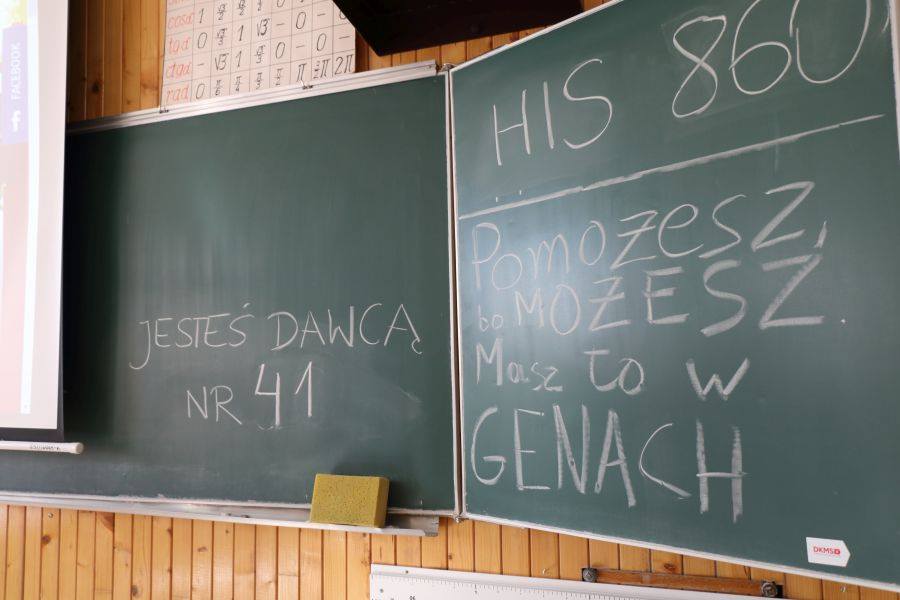 FACEBOOK
cosα 1 √3/2 √2/2 1/2 0
tgα 0 √3/3 1 √3 - 0 - 0
ctgα - √3 1 √3/3 0 - 0 -
rad 0 π/6 π/4 π/3 π/2 π 3/2π 2π
JESTEŚ DAWCĄ
NR 41
HIS 860
POMOŻESZ,
bo MOŻESZ.
Masz to w
GENACH
DKMS